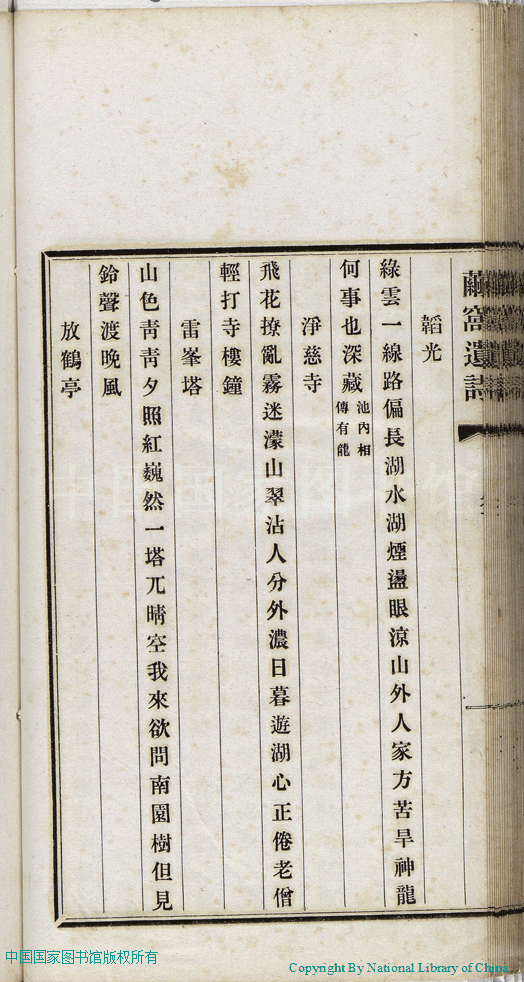 繭窩遺詩
韜光
綠雲一線路偏長湖水湖煙盪眼涼山外人家方苦旱神龍
何事也深藏池內相傳有龍
淨慈寺
飛花撩亂霧迷濛山翠沾人分外濃日暮遊湖心正倦老僧
輕打寺樓鐘
雷峯塔
山色靑靑夕照紅巍然一塔兀晴空我來欲問南園樹但見
鈴聲渡晚風
放鶴亭
中国国家图书馆版权所有
Copyright By National Library of China